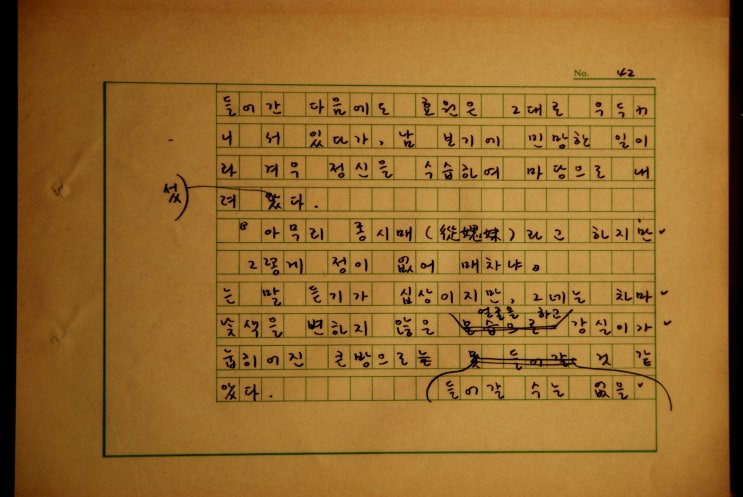 No. 42
들어간 다음에도 효원은 그대로 우두커
니 서 있다가, 남 보기에 민망한 일이
라 겨우 정신을 수습하여 마당으로 내
려 왔다.
섰
『아무리 종시매(從媤妹)라고 하지만
그렇게 정이 없어 매차냐』
는 말 듣기가 십상이지만, 그네는 차마
얼굴을 하고
낯색을 변하지 않은 모습으로 강실이가
눕히어진 큰방으로는 못 들어갈 것 같
았다. 들어갈 수는 없을